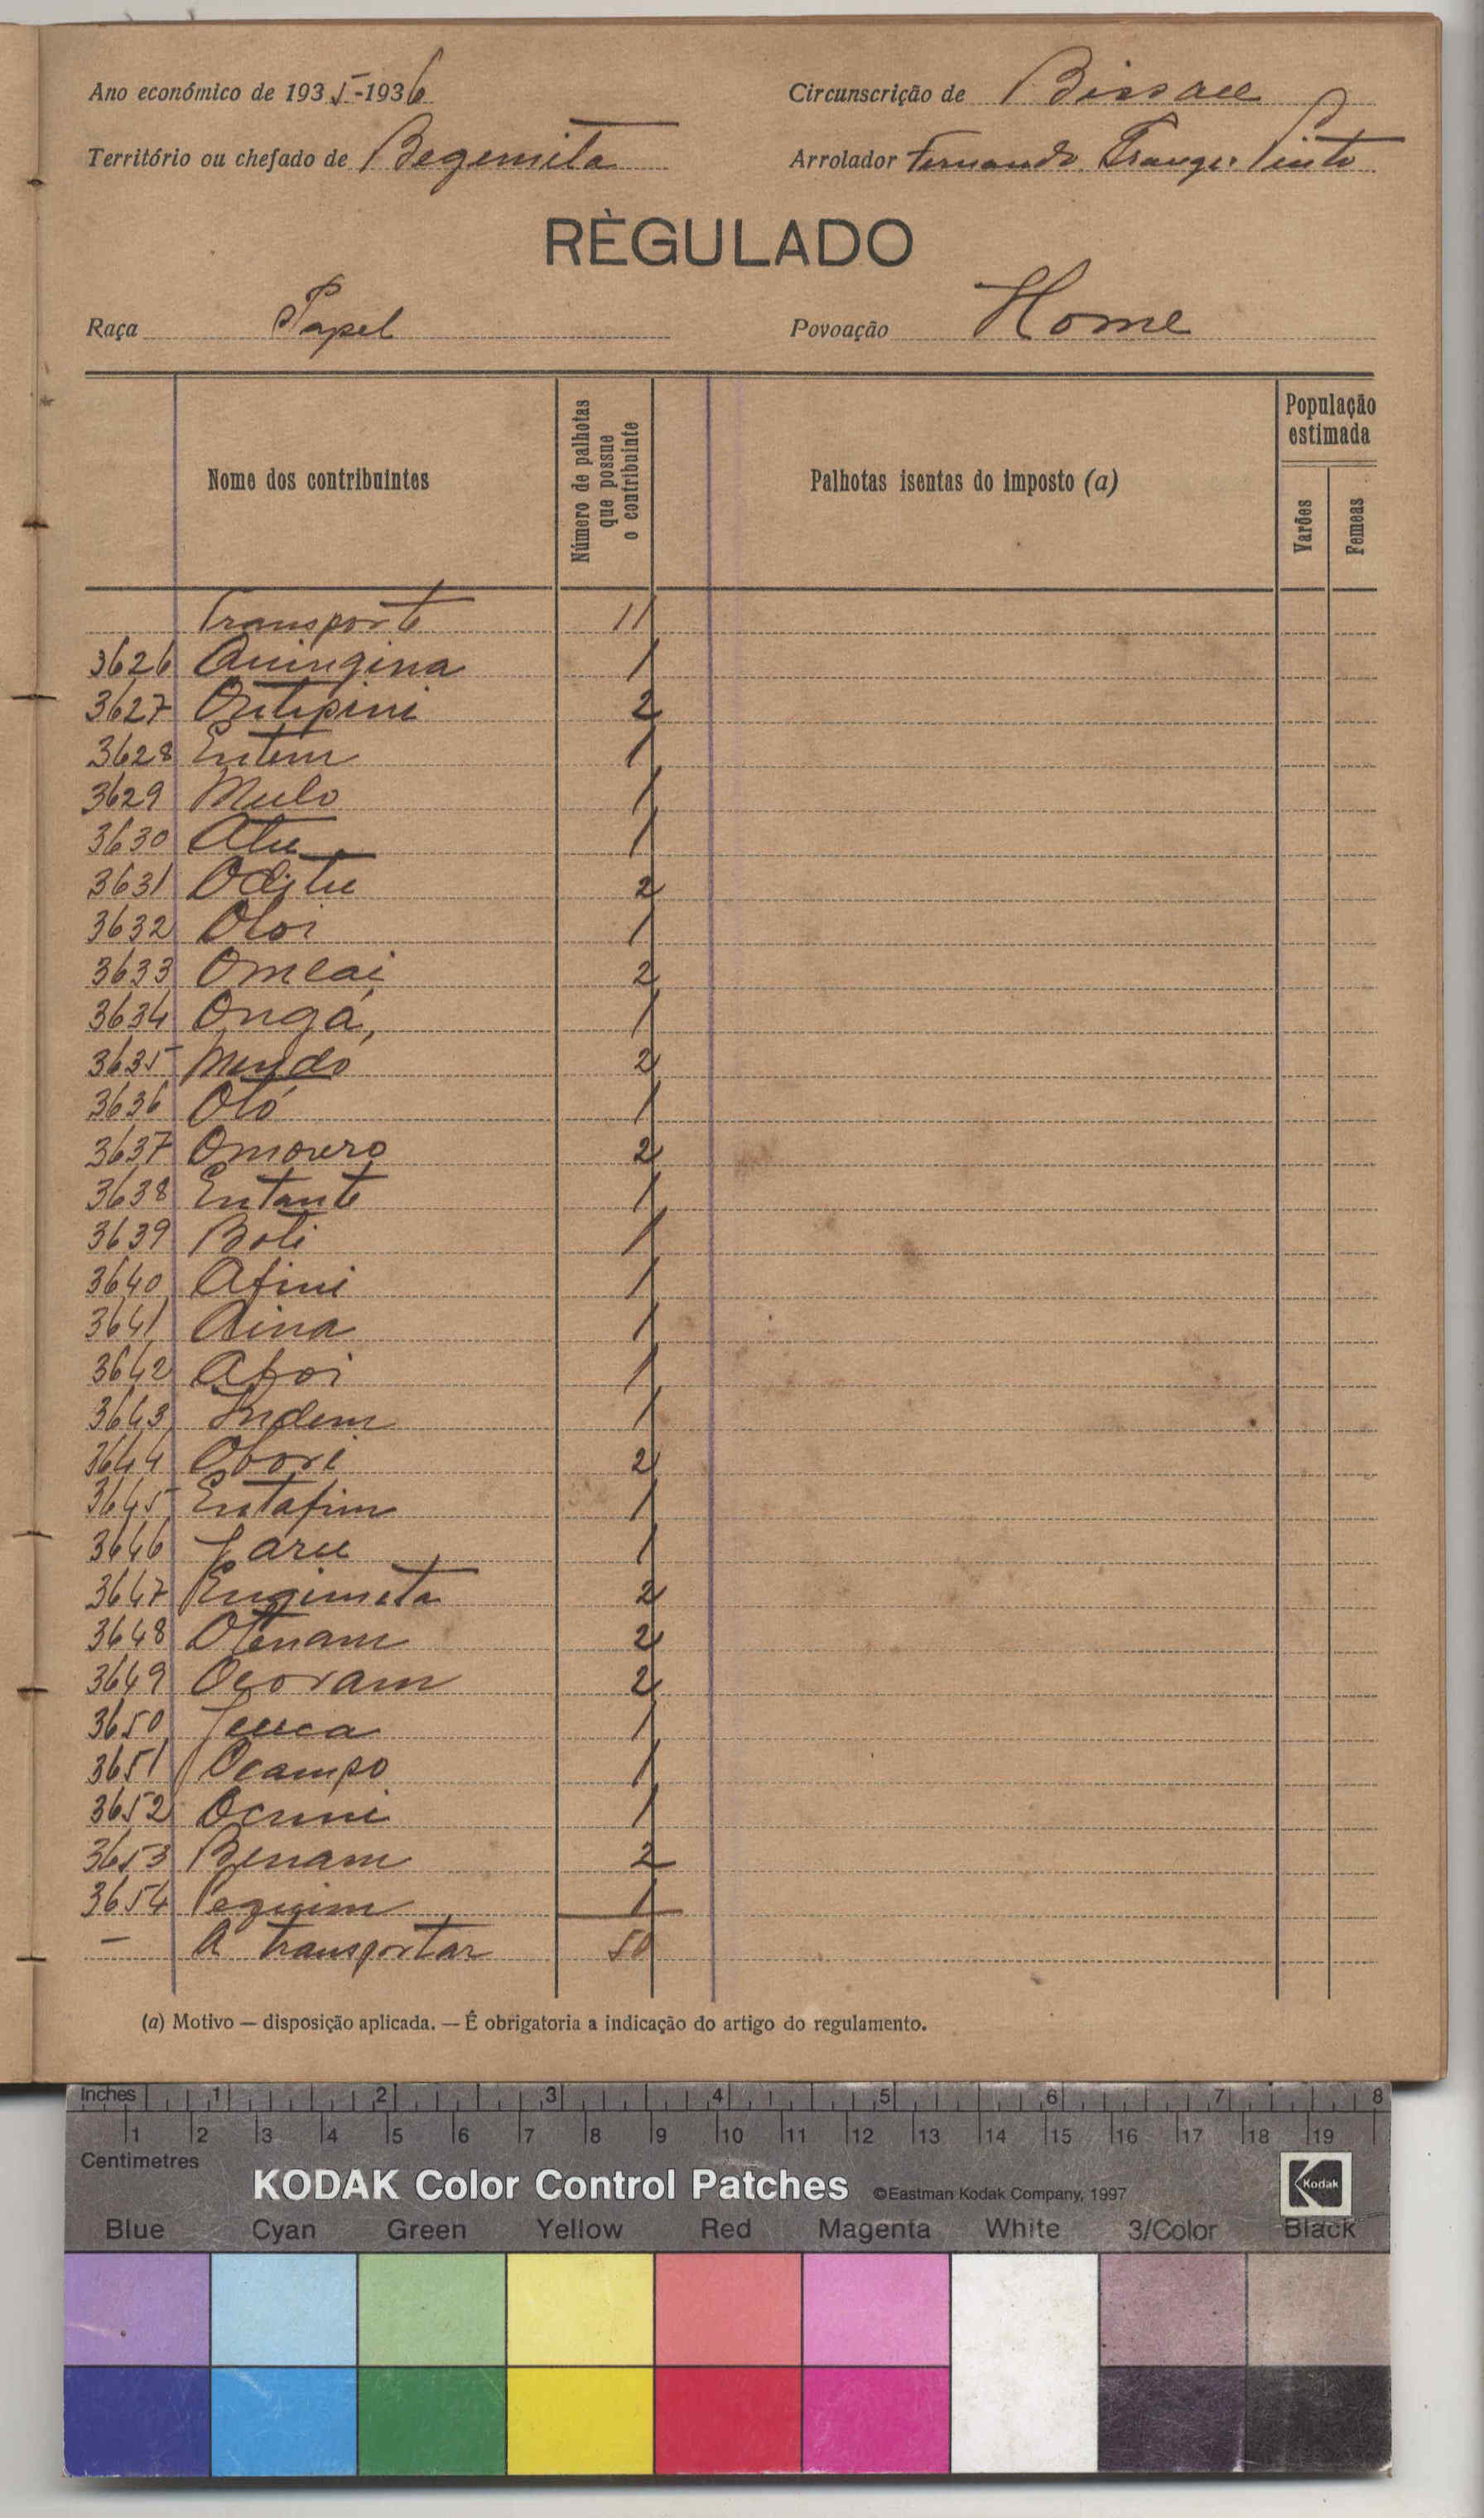 Ano económico de 1935-1936
Circunscrição de Bissau
Território ou chefado de Begemita
Arrolador Fernando Pinto
RÈGULADO
Raça Papel
Povoação Home
Nome dos contribuintes
Número de palhotas que possue o contribuinte
Palhotas isentas do imposto (a)
População estimada
Varões
Femeas
Transporte 11
3626 Quingina 1
3627 Ontipini 2
3628 Entem 1
3629 Mulo 1
3630 Atu 1
3631 Oditu 2
3632 Oloi 1
3633 Omeai 2
3634 Ongá 1
3635 Mendo 2
3636 Otó 1
3637 Omouro 2
3638 Entante 1
3639 Boti 1
3640 Afini 1
3641 Aina 1
3642 Afoi 1
3643 Indem 1
3644 Obori 2
3645 Entafim 1
3646 Jaru 1
3647 Engimeta 2
3648 Otenam 2
3649 Ocoram 2
3650 1
3651 Ocampo 1
3652 Ocuni 1
3653 Benam 2
3654 Pequim 1
— A transportar 50
(a) Motivo — disposição aplicada. — É obrigatoria a indicação do artigo do regulamento.
Inches 1 2 3 4 5 6 7 8
1 2 3 4 5 6 7 8 9 10 11 12 13 14 15 16 17 18 19
Centimetres
KODAK Color Control Patches ©Eastman Kodak Company, 1997 Kodak
Blue Cyan Green Yellow Red Magenta White 3/Color Black